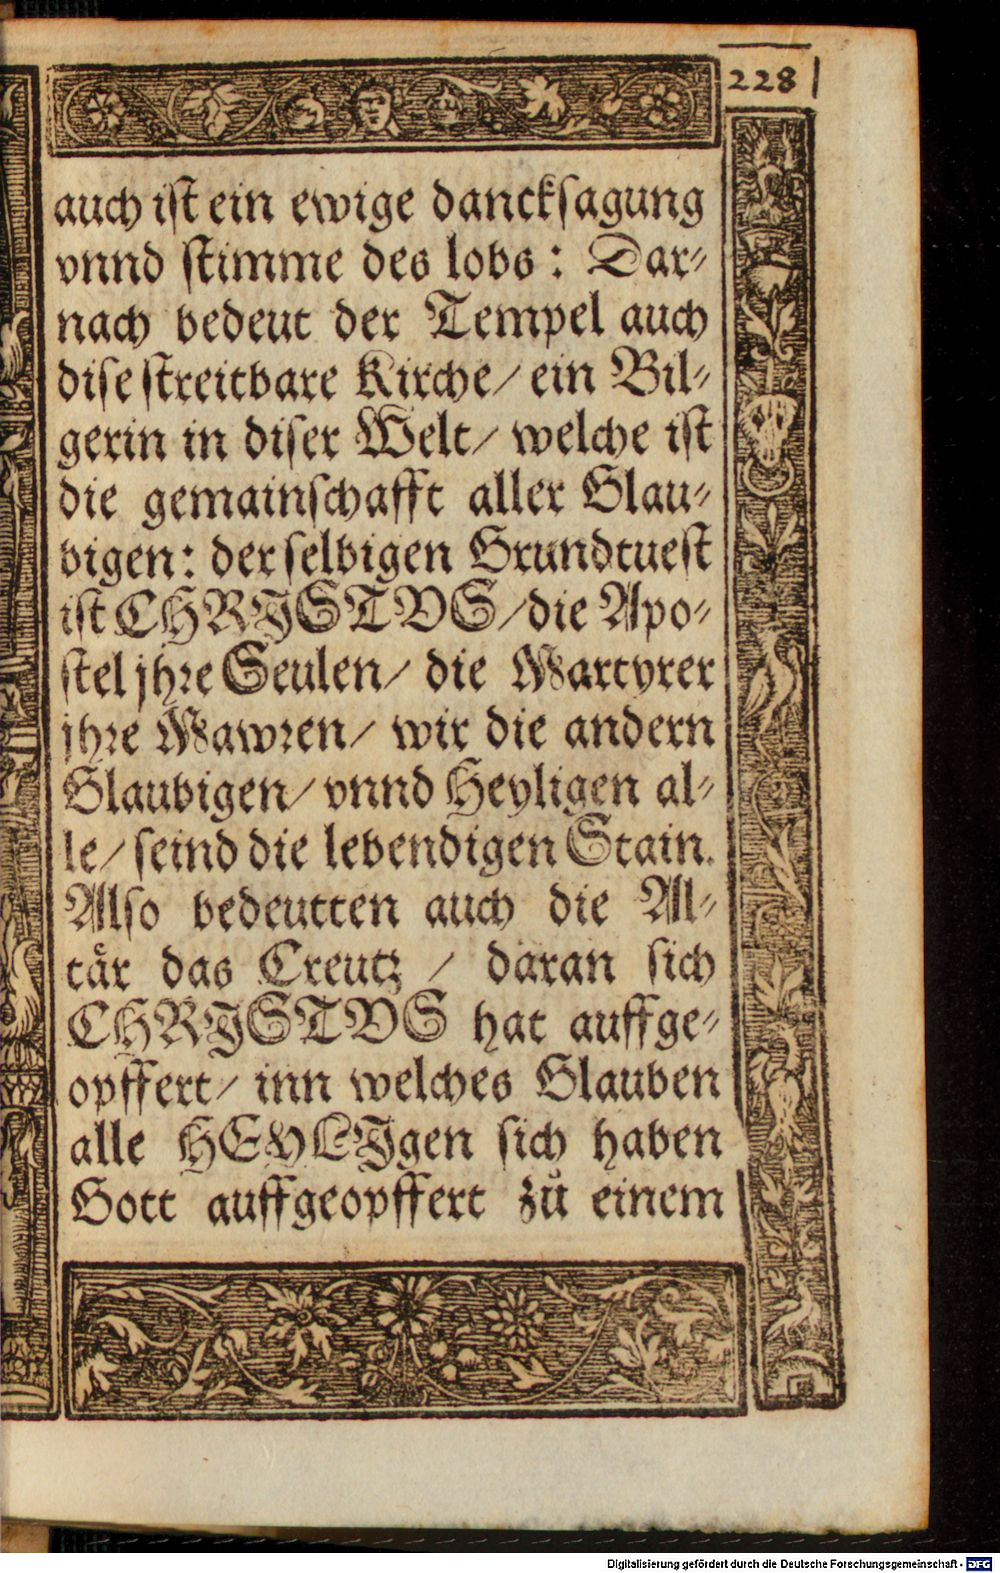 228
auch ist ein ewige dancksagung
vnnd stimme des lobs : Dar-
nach bedeut der Tempel auch
dise streitbare Kirche/ ein Bil-
gerin in diser Welt/ welche ist
die gemainschafft aller Glau-
bigen: derselbigen Grundtuest
ist CHRISTVS/die Apo-
stel jhre Seulen/ die Martyrer
jhre Mawren/ wir die andern
Glaubigen/ vnnd Heyligen al-
le/ seind die lebendigen Stain.
Also bedeutten auch die Al-
tär das Creutz / daran sich
CHRISTVS hat auffge-
opffert/ inn welches Glauben
alle HEYLIgen sich haben
Gott auffgeopffert zů einem
Digitalisierung gefördert durch die Deutsche Forschungsgemeinschaft - DFG